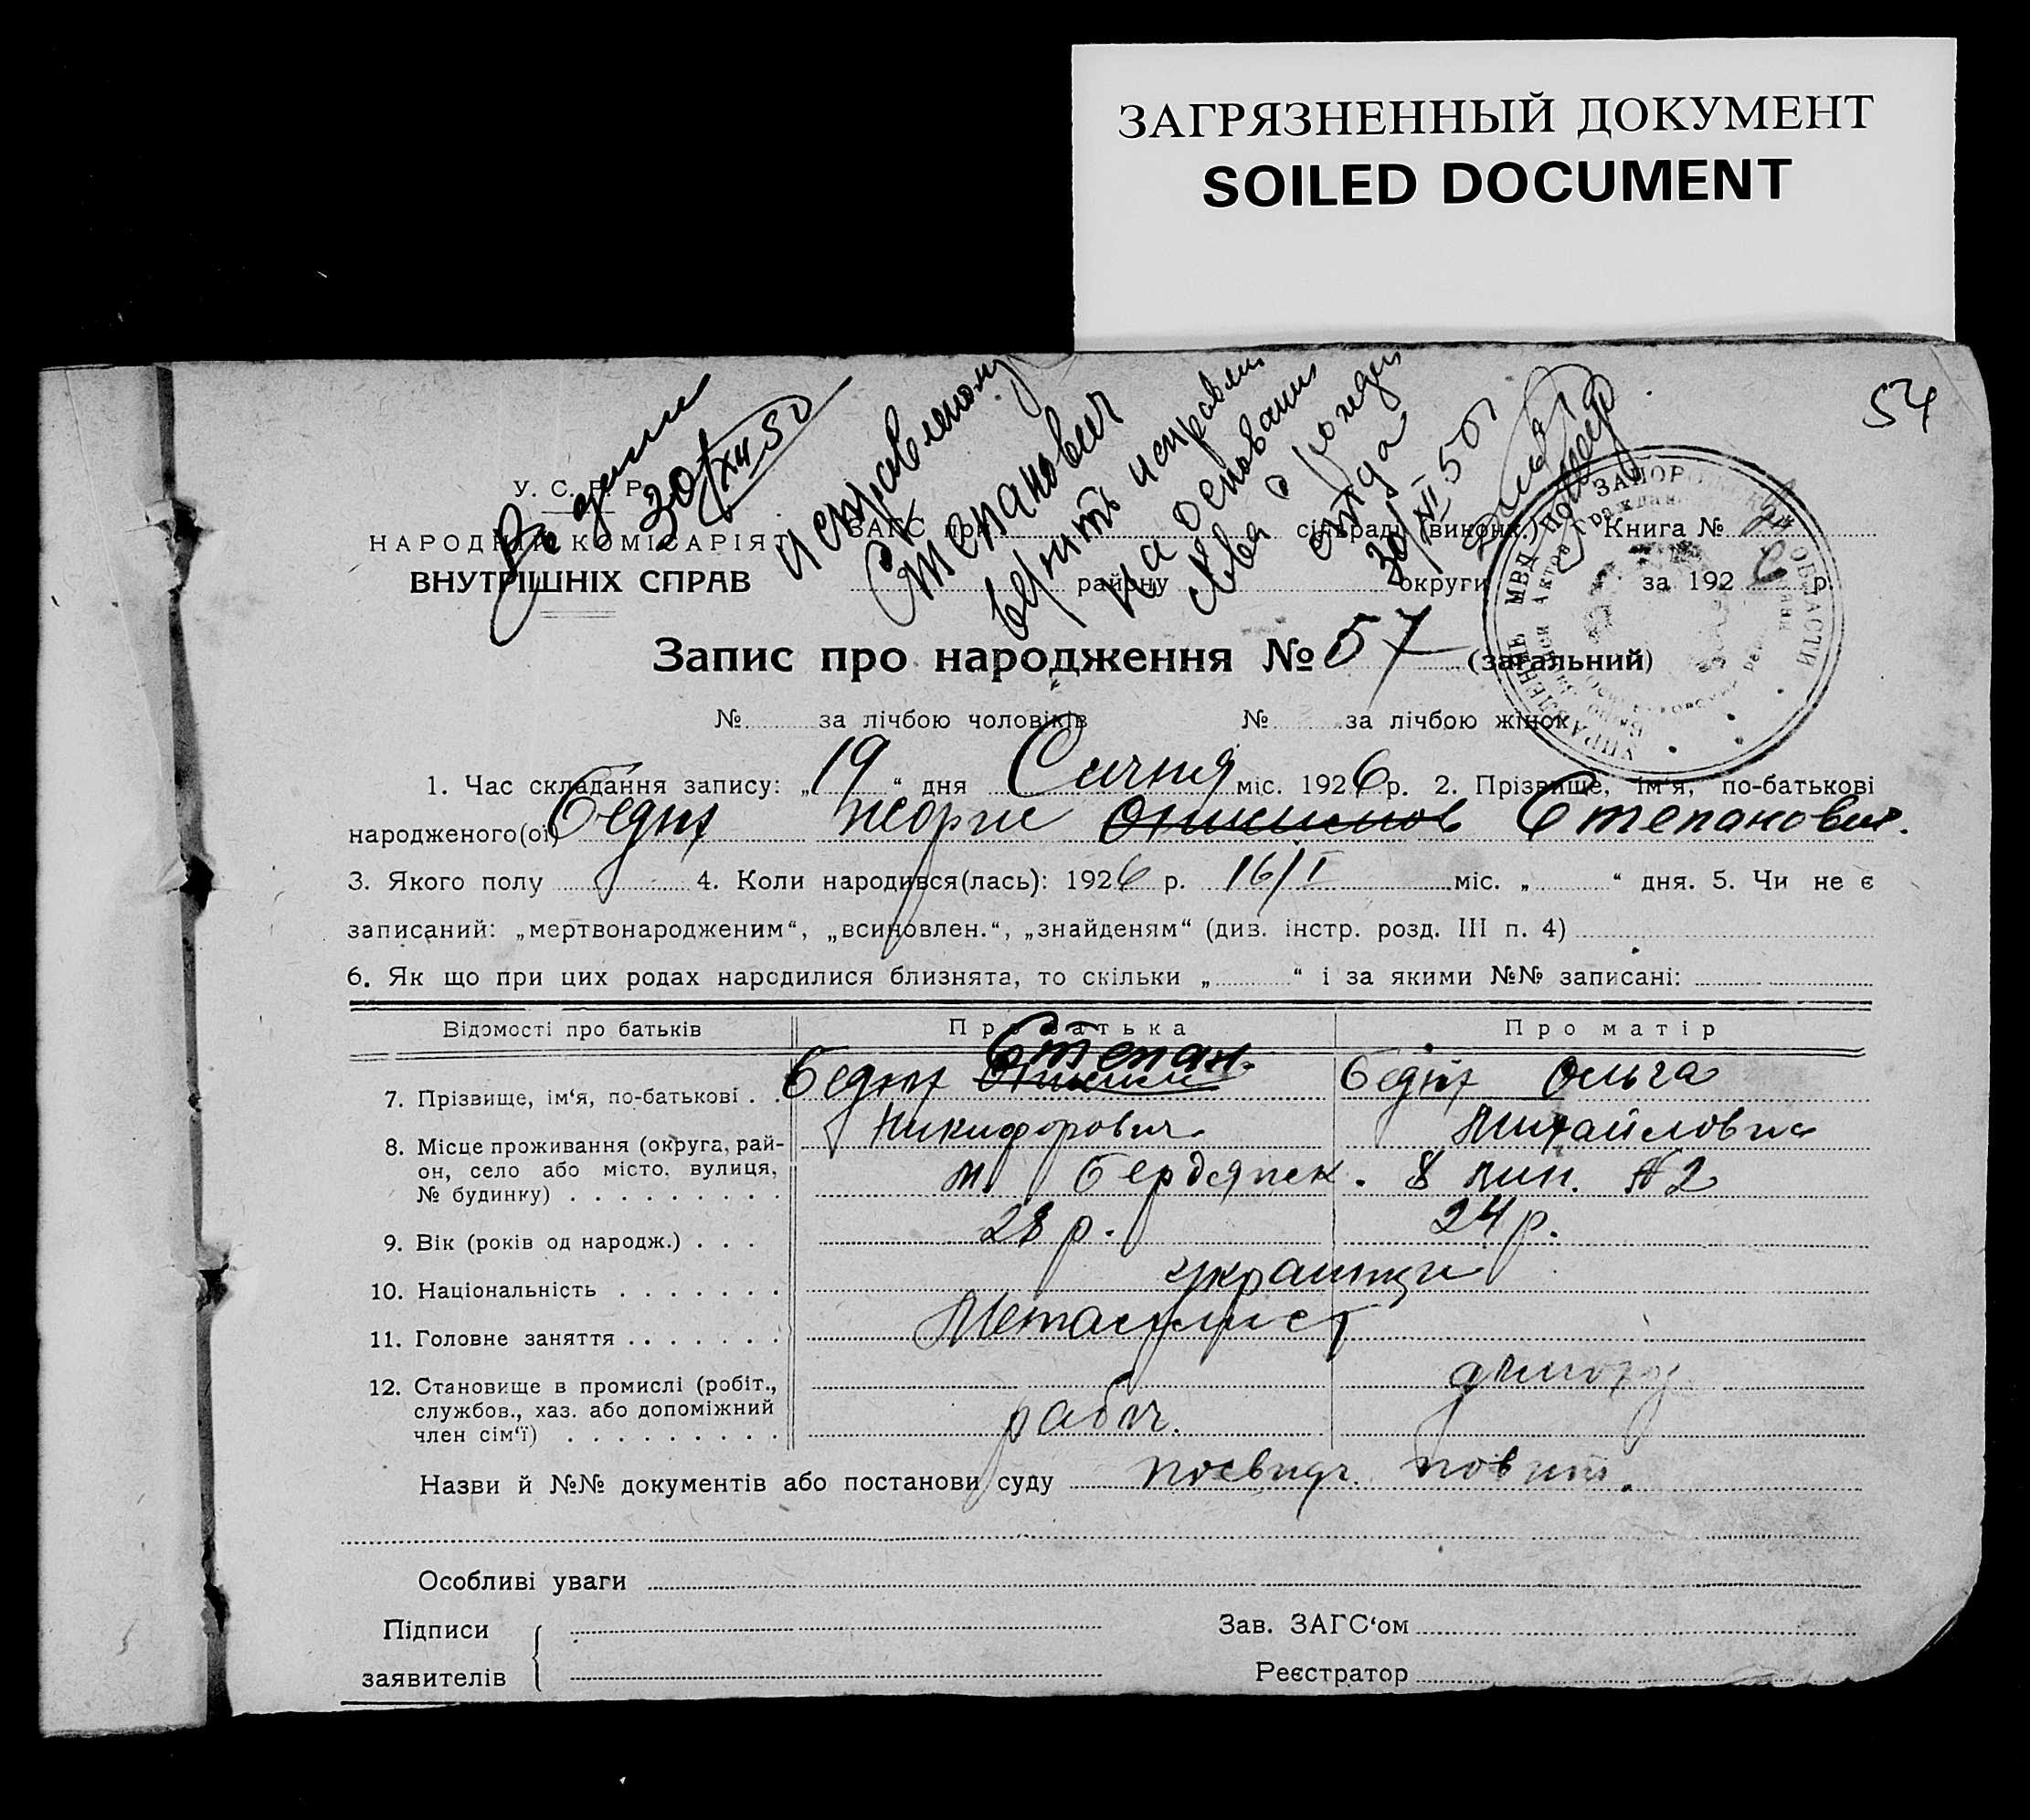 ЗАГРЯЗНЕННЫЙ ДОКУМЕНТ
SOILED DOCUMENT
54
30/XII 50
исправленому
Степанович
верить исправлен
на основании
о рожден
отца
30/XII 50
У. С. Р. Р.
НАРОДНИЙ КОМІСАРІЯТ
ВНУТРІШНІХ СПРАВ
ЗАГС при сільраді (виконк.) Книга №
району округи за 1926 р.
УПРАВЛЕНИЕ МВД ПО ЗАПОРОЖСКОЙ ОБЛАСТИ
Запис про народження № 57 (загальний)
№ за лічбою чоловіків № за лічбою жінок
1. Час складання запису: „19“ дня Січня міс. 1926 р. 2. Прізвище, ім'я, по-батькові
народженого(ої) Бедня Георгіє Степанович.
3. Якого полу 4. Коли народився(лась): 1926 р. 16/I міс. „ “ дня. 5. Чи не є
записаний: „мертвонародженим“, „всиновлен.“, „знайденям“ (див. інстр. розд. III п. 4)
6. Як що при цих родах народилися близнята, то скільки „ “ і за якими №№ записані:
Відомості про батьків Про батька Про матір
Степан.
7. Прізвище, ім'я, по-батькові . . Бедня Бедня Ольга
Никифорович Михайловна
8. Місце проживання (округа, рай-
он, село або місто, вулиця,
№ будинку) . . . . . . . . . м. Бердянск. 8 лин. № 2
9. Вік (років од народж.) . . . 28 р. 24 р.
10. Національність . . . . . . . українці
11. Головне заняття . . . . . . . Металист
12. Становище в промислі (робіт.,
службов., хаз. або допоміжний
член сім'ї) . . . . . . . . . робіт.
Назви й №№ документів або постанови суду посвідч. повит.
Особливі уваги
Підписи Зав. ЗАГС'ом
заявителів Реєстратор